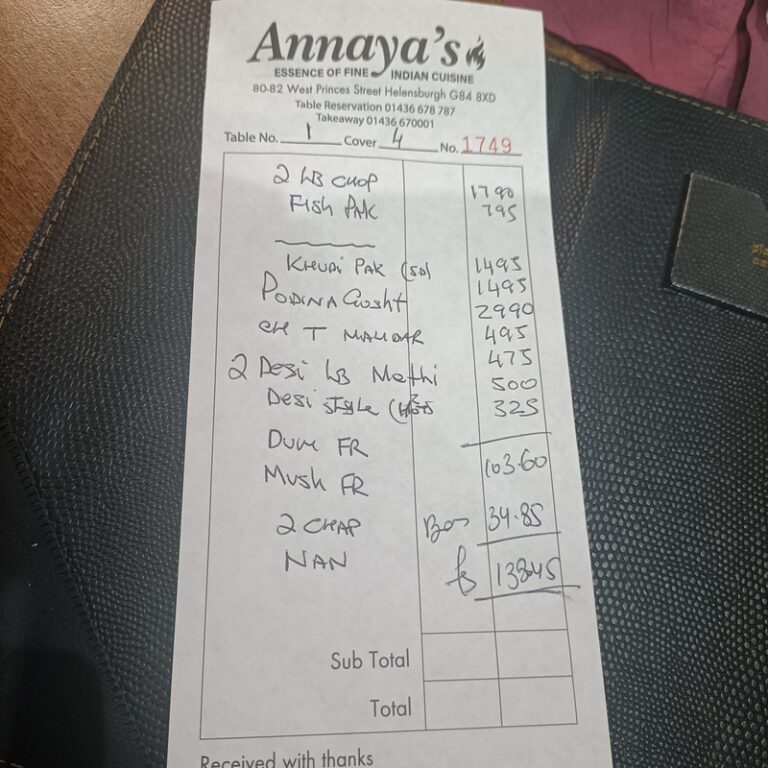 Annaya's
ESSENCE OF FINE INDIAN CUISINE
80-82 West Princes Street Helensburgh G84 8XD
Table Reservation 01436 678 787
Takeaway 01436 670001
Table No. 1 Cover 4 No. 1749
2 LB CHOP 1790
Fish PAK 795
KHURI PAK 1495
PODINA Gosht 1495
2990
CH T 495
2 Desi LB Methi 475
500
Desi style 325
FR
Mush FR 103.60
2 CHAP 34.85
NAN 138.45
Sub Total
Total
Received with thanks